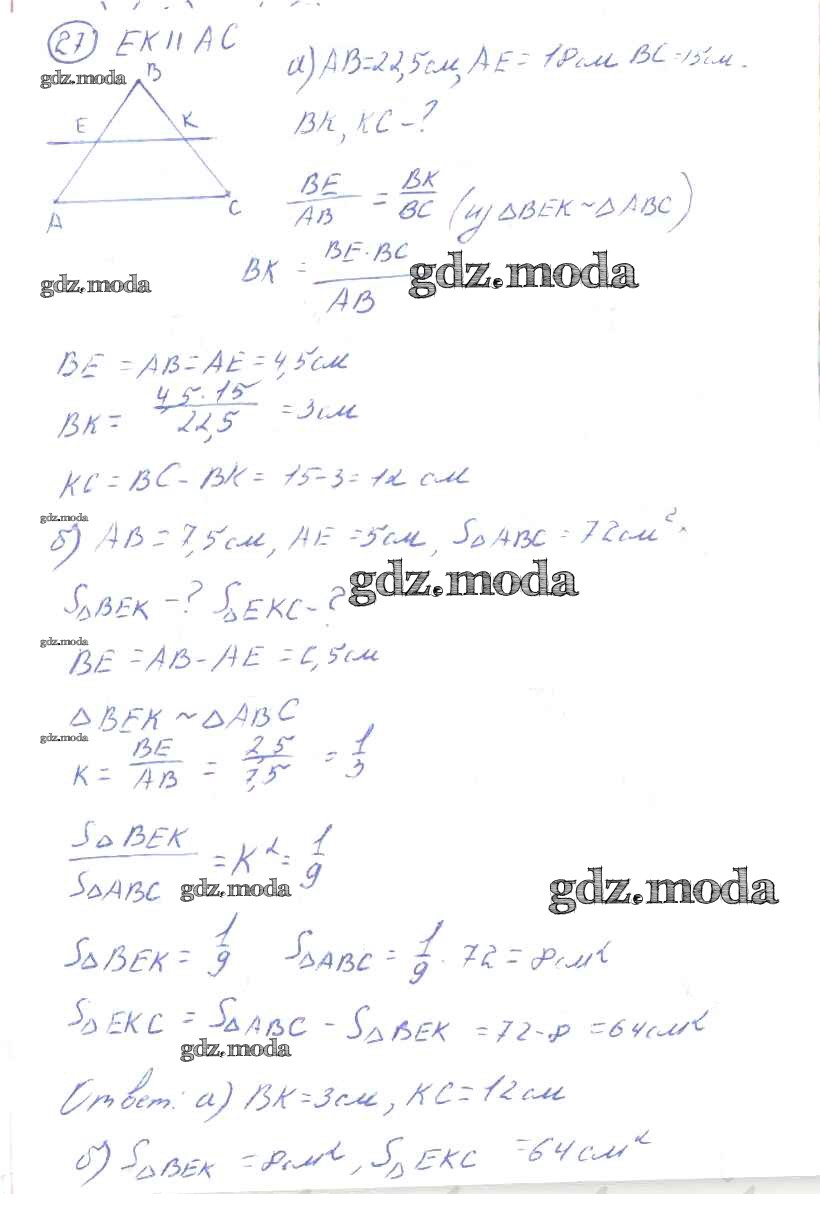 27) EK || AC
а) AB=22,5см, AE=18см BC=15см.
gdz.moda
B
E K
A C
BK, KC-?
BE/AB = BK/BC (из △BEK~△ABC)
BK = BE·BC/AB
gdz.moda
gdz.moda
BE=AB=AE=4,5см
BK= 4,5·15/22,5 =3см
KC=BC-BK=15-3=12 см
gdz.moda
б) AB=7,5см, AE=5см, S△ABC=72см².
gdz.moda
S△BEK-? S△EKC-?
gdz.moda
BE=AB-AE=2,5см
△BEK~△ABC
gdz.moda
K= BE/AB = 2,5/7,5 = 1/3
S△BEK/S△ABC =K²= 1/9
gdz.moda
gdz.moda
S△BEK= 1/9 S△ABC= 1/9·72=8см²
S△EKC=S△ABC-S△BEK=72-8=64см²
gdz.moda
Ответ: а) BK=3см, KC=12см
б) S△BEK=8см², S△EKC=64см²